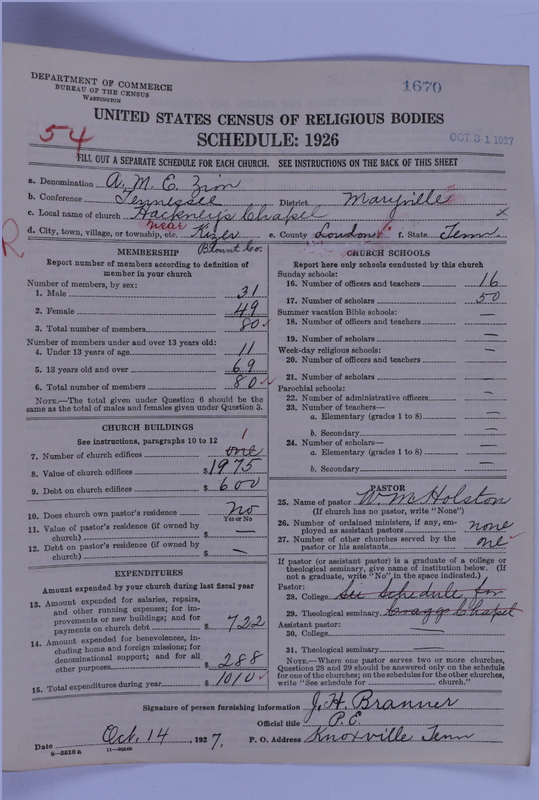 DEPARTMENT OF COMMERCE
BUREAU OF THE CENSUS
WASHINGTON
1670
UNITED STATES CENSUS OF RELIGIOUS BODIES
SCHEDULE: 1926
OCT 31 1927
54
FILL OUT A SEPARATE SCHEDULE FOR EACH CHURCH. SEE INSTRUCTIONS ON THE BACK OF THIS SHEET
a. Denomination A. M. E. Zion
b. Conference Tennessee District Maryville
c. Local name of church Hackney's Chapel x
near
d. City, town, village, or township, etc. e. County Loudon f. State Tenn.
Blount Co.
R
MEMBERSHIP
Report number of members according to definition of member in your church
Number of members, by sex:
1. Male 31
2. Female 49
3. Total number of members 80
Number of members under and over 13 years old:
4. Under 13 years of age 11
5. 13 years old and over 69
6. Total number of members 80
NOTE.—The total given under Question 6 should be the same as the total of males and females given under Question 3.
CHURCH BUILDINGS
See instructions, paragraphs 10 to 12
1
7. Number of church edifices one
8. Value of church edifices $1975
9. Debt on church edifices $600
10. Does church own pastor's residence No
Yes or No
11. Value of pastor's residence (if owned by church) $ —
12. Debt on pastor's residence (if owned by church) $ —
EXPENDITURES
Amount expended by your church during last fiscal year
13. Amount expended for salaries, repairs, and other running expenses; for improvements or new buildings; and for payments on church debt $ 722
14. Amount expended for benevolences, including home and foreign missions; for denominational support; and for all other purposes $ 288
15. Total expenditures during year $ 1010
CHURCH SCHOOLS
Report here only schools conducted by this church
Sunday schools:
16. Number of officers and teachers 16
17. Number of scholars 50
Summer vacation Bible schools:
18. Number of officers and teachers —
19. Number of scholars —
Week-day religious schools:
20. Number of officers and teachers —
21. Number of scholars —
Parochial schools:
22. Number of administrative officers —
23. Number of teachers—
a. Elementary (grades 1 to 8) —
b. Secondary —
24. Number of scholars—
a. Elementary (grades 1 to 8) —
b. Secondary —
PASTOR
25. Name of pastor W. M. Holston
(If church has no pastor, write "None")
26. Number of ordained ministers, if any, employed as assistant pastors none
27. Number of other churches served by the pastor or his assistants one
If pastor (or assistant pastor) is a graduate of a college or theological seminary, give name of institution below. (If not a graduate, write "No", in the space indicated.)
Pastor:
28. College See Schedule for
29. Theological seminary Cragg Chapel
Assistant pastor:
30. College —
31. Theological seminary —
NOTE.—Where one pastor serves two or more churches, Questions 28 and 29 should be answered only on the schedule for one of the churches; on the schedules for the other churches, write "See schedule for ........ church."
Signature of person furnishing information J. H. Branner
Official title P. E.
Date Oct. 14, 1927. P. O. Address Knoxville Tenn